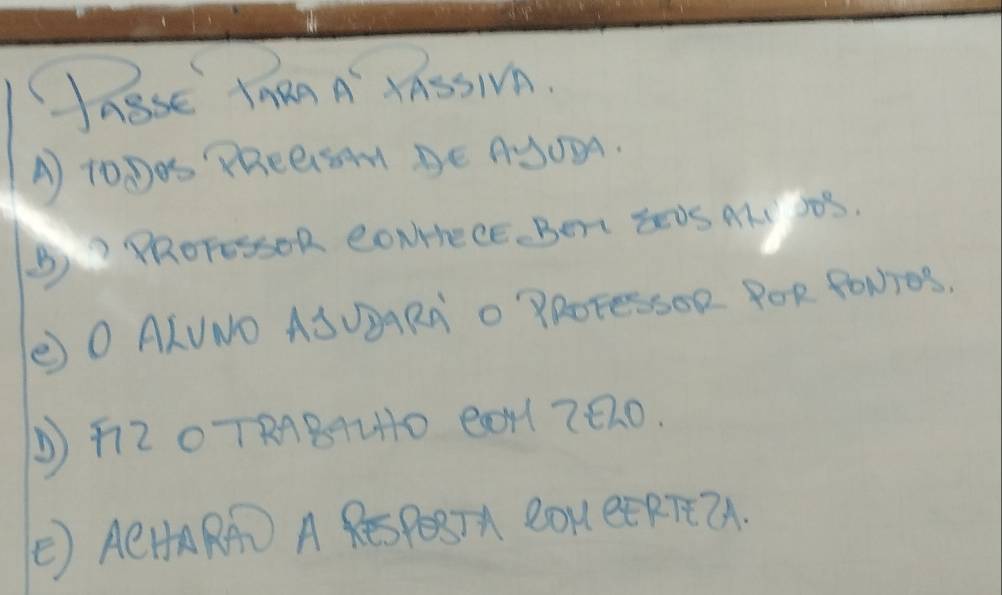 PASSE PARA A PASSIVA.
A) TODOS PRECISAM DE AJUDA.
B) O PROFESSOR CONHECE BEM SEUS ALUNOS.
C) O ALUNO AJUDARÁ O PROFESSOR POR PONTOS.
D) FIZ O TRABALHO COM ZELO.
E) ACHARÃO A RESPOSTA COM CERTEZA.